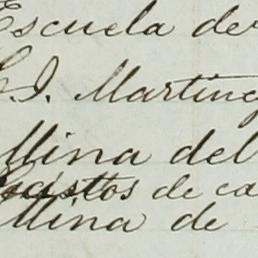 Escuela de
J. Martinez
Mina del
Gastos de ca
Mina de